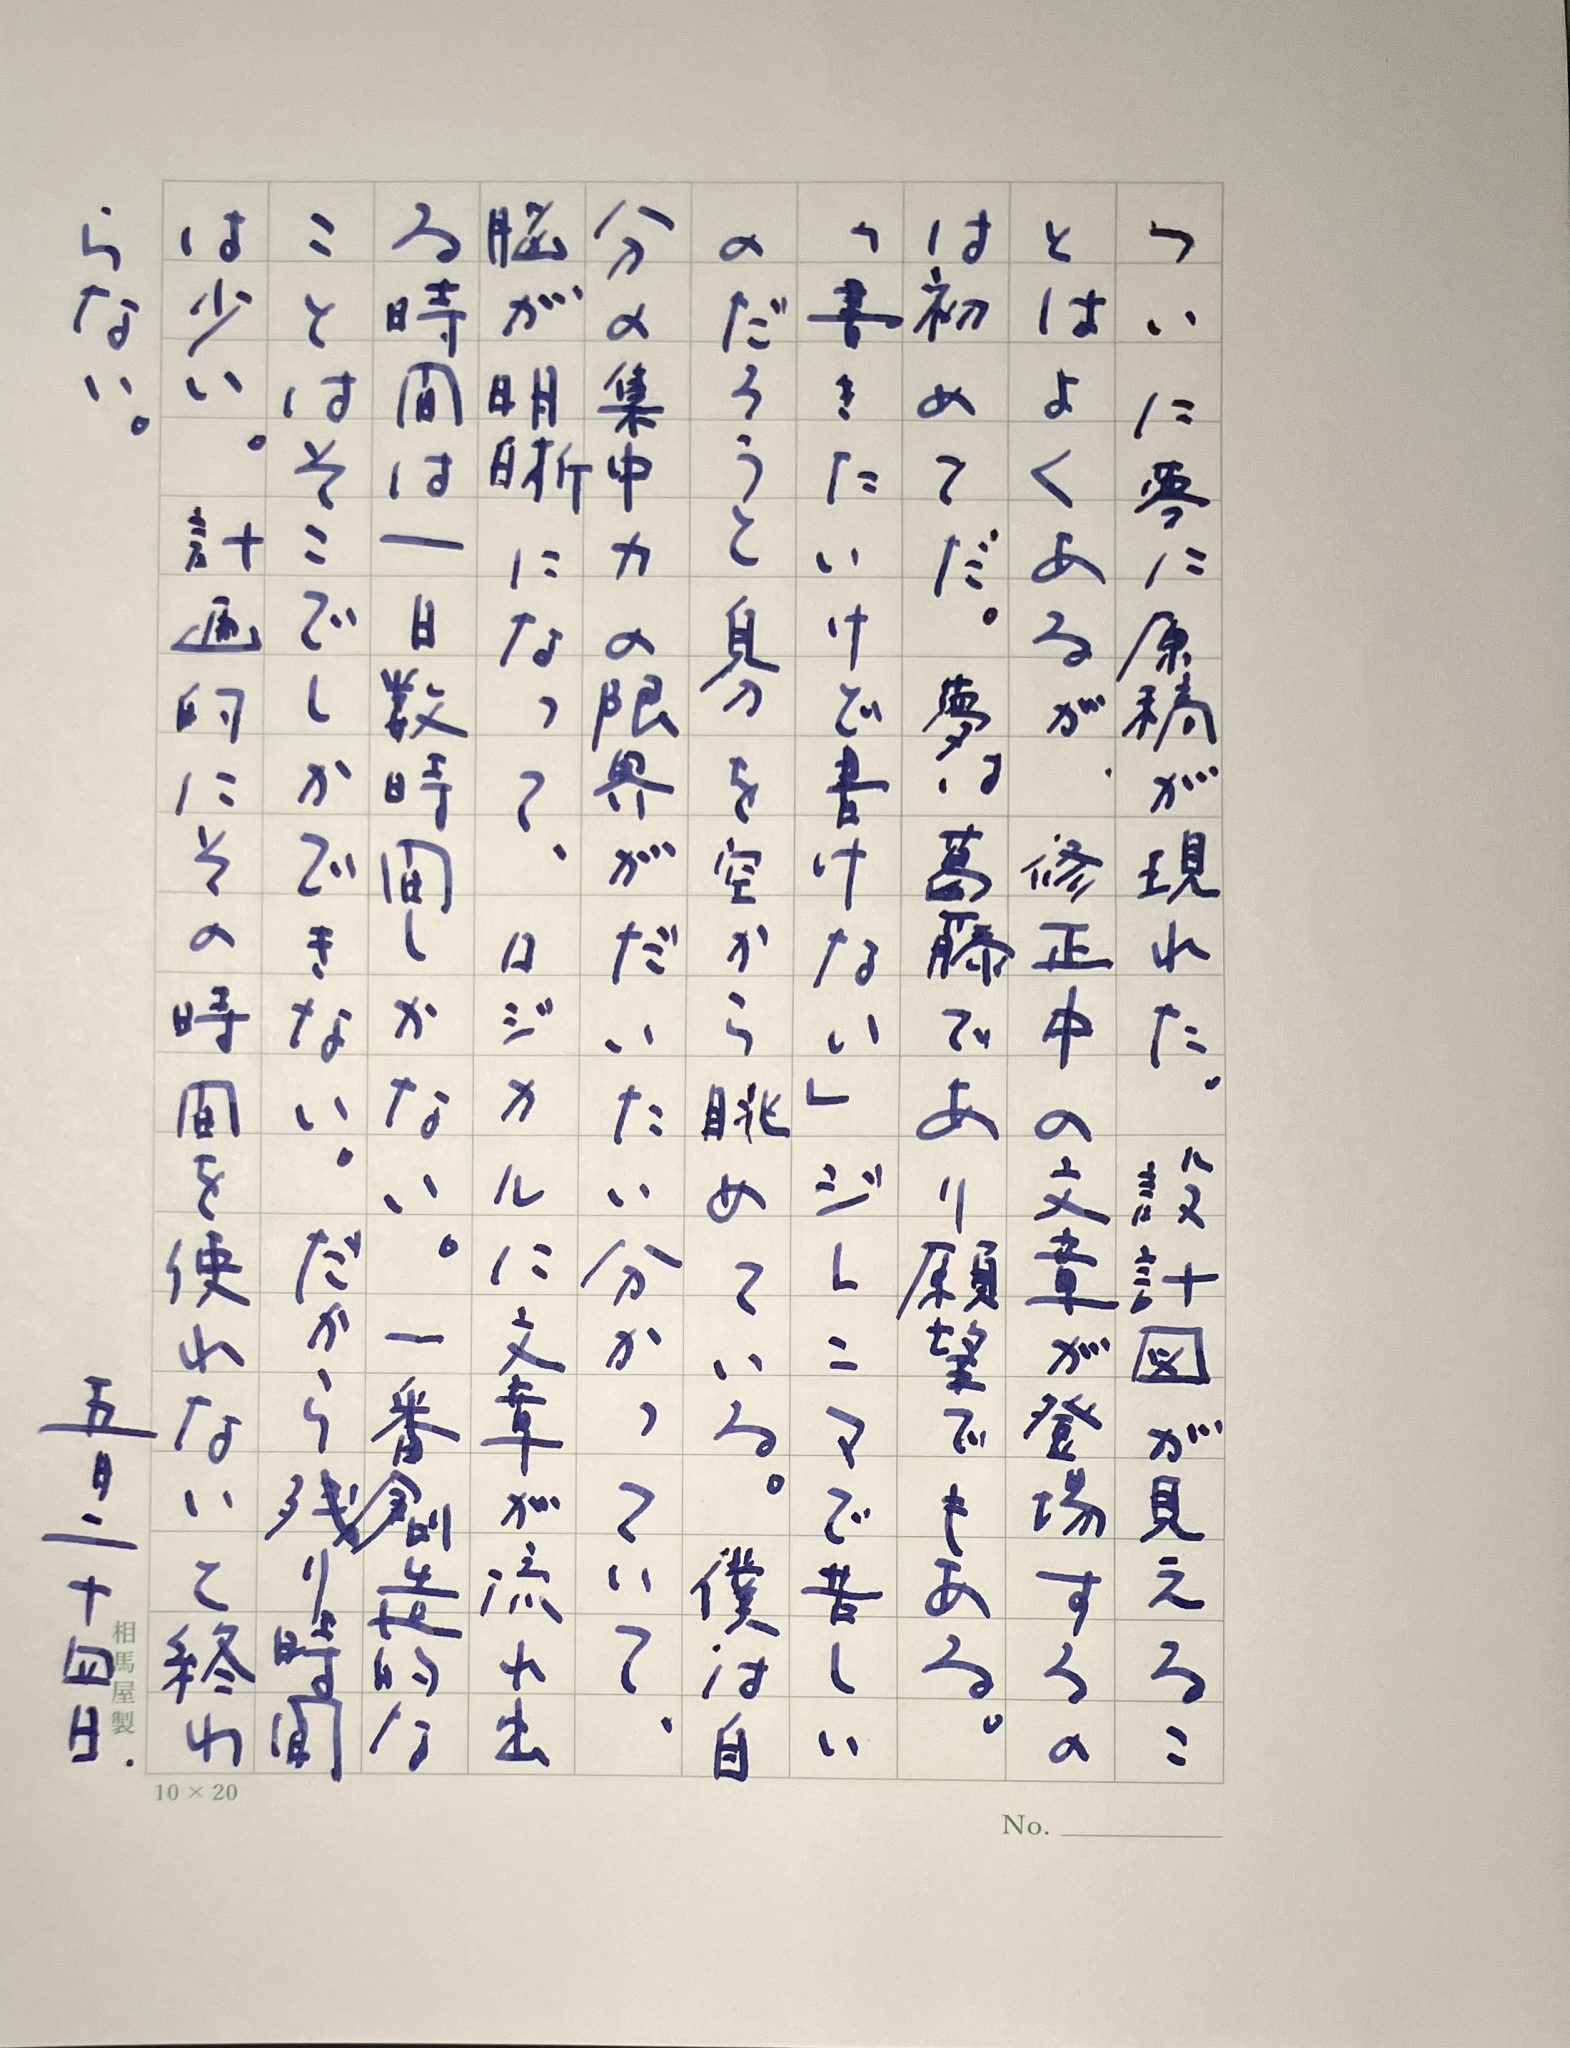 ついに夢に原稿が現れた。設計図が見えるこ
とはよくあるが、修正中の文章が登場するの
は初めてだ。夢は葛藤であり願望でもある。
「書きたいけど書けない」ジレンマで苦しい
のだろうと自分を空から眺めている。僕は自
分の集中力の限界がだいたい分かっていて、
脳が明晰になって、ロジカルに文章が流れ出
る時間は一日数時間しかない。一番創造的な
ことはそこでしかできない。だから残り時間
は少い。計画的にその時間を使わないと終わ
らない。
五月二十四日
相馬屋製
10 × 20
No.